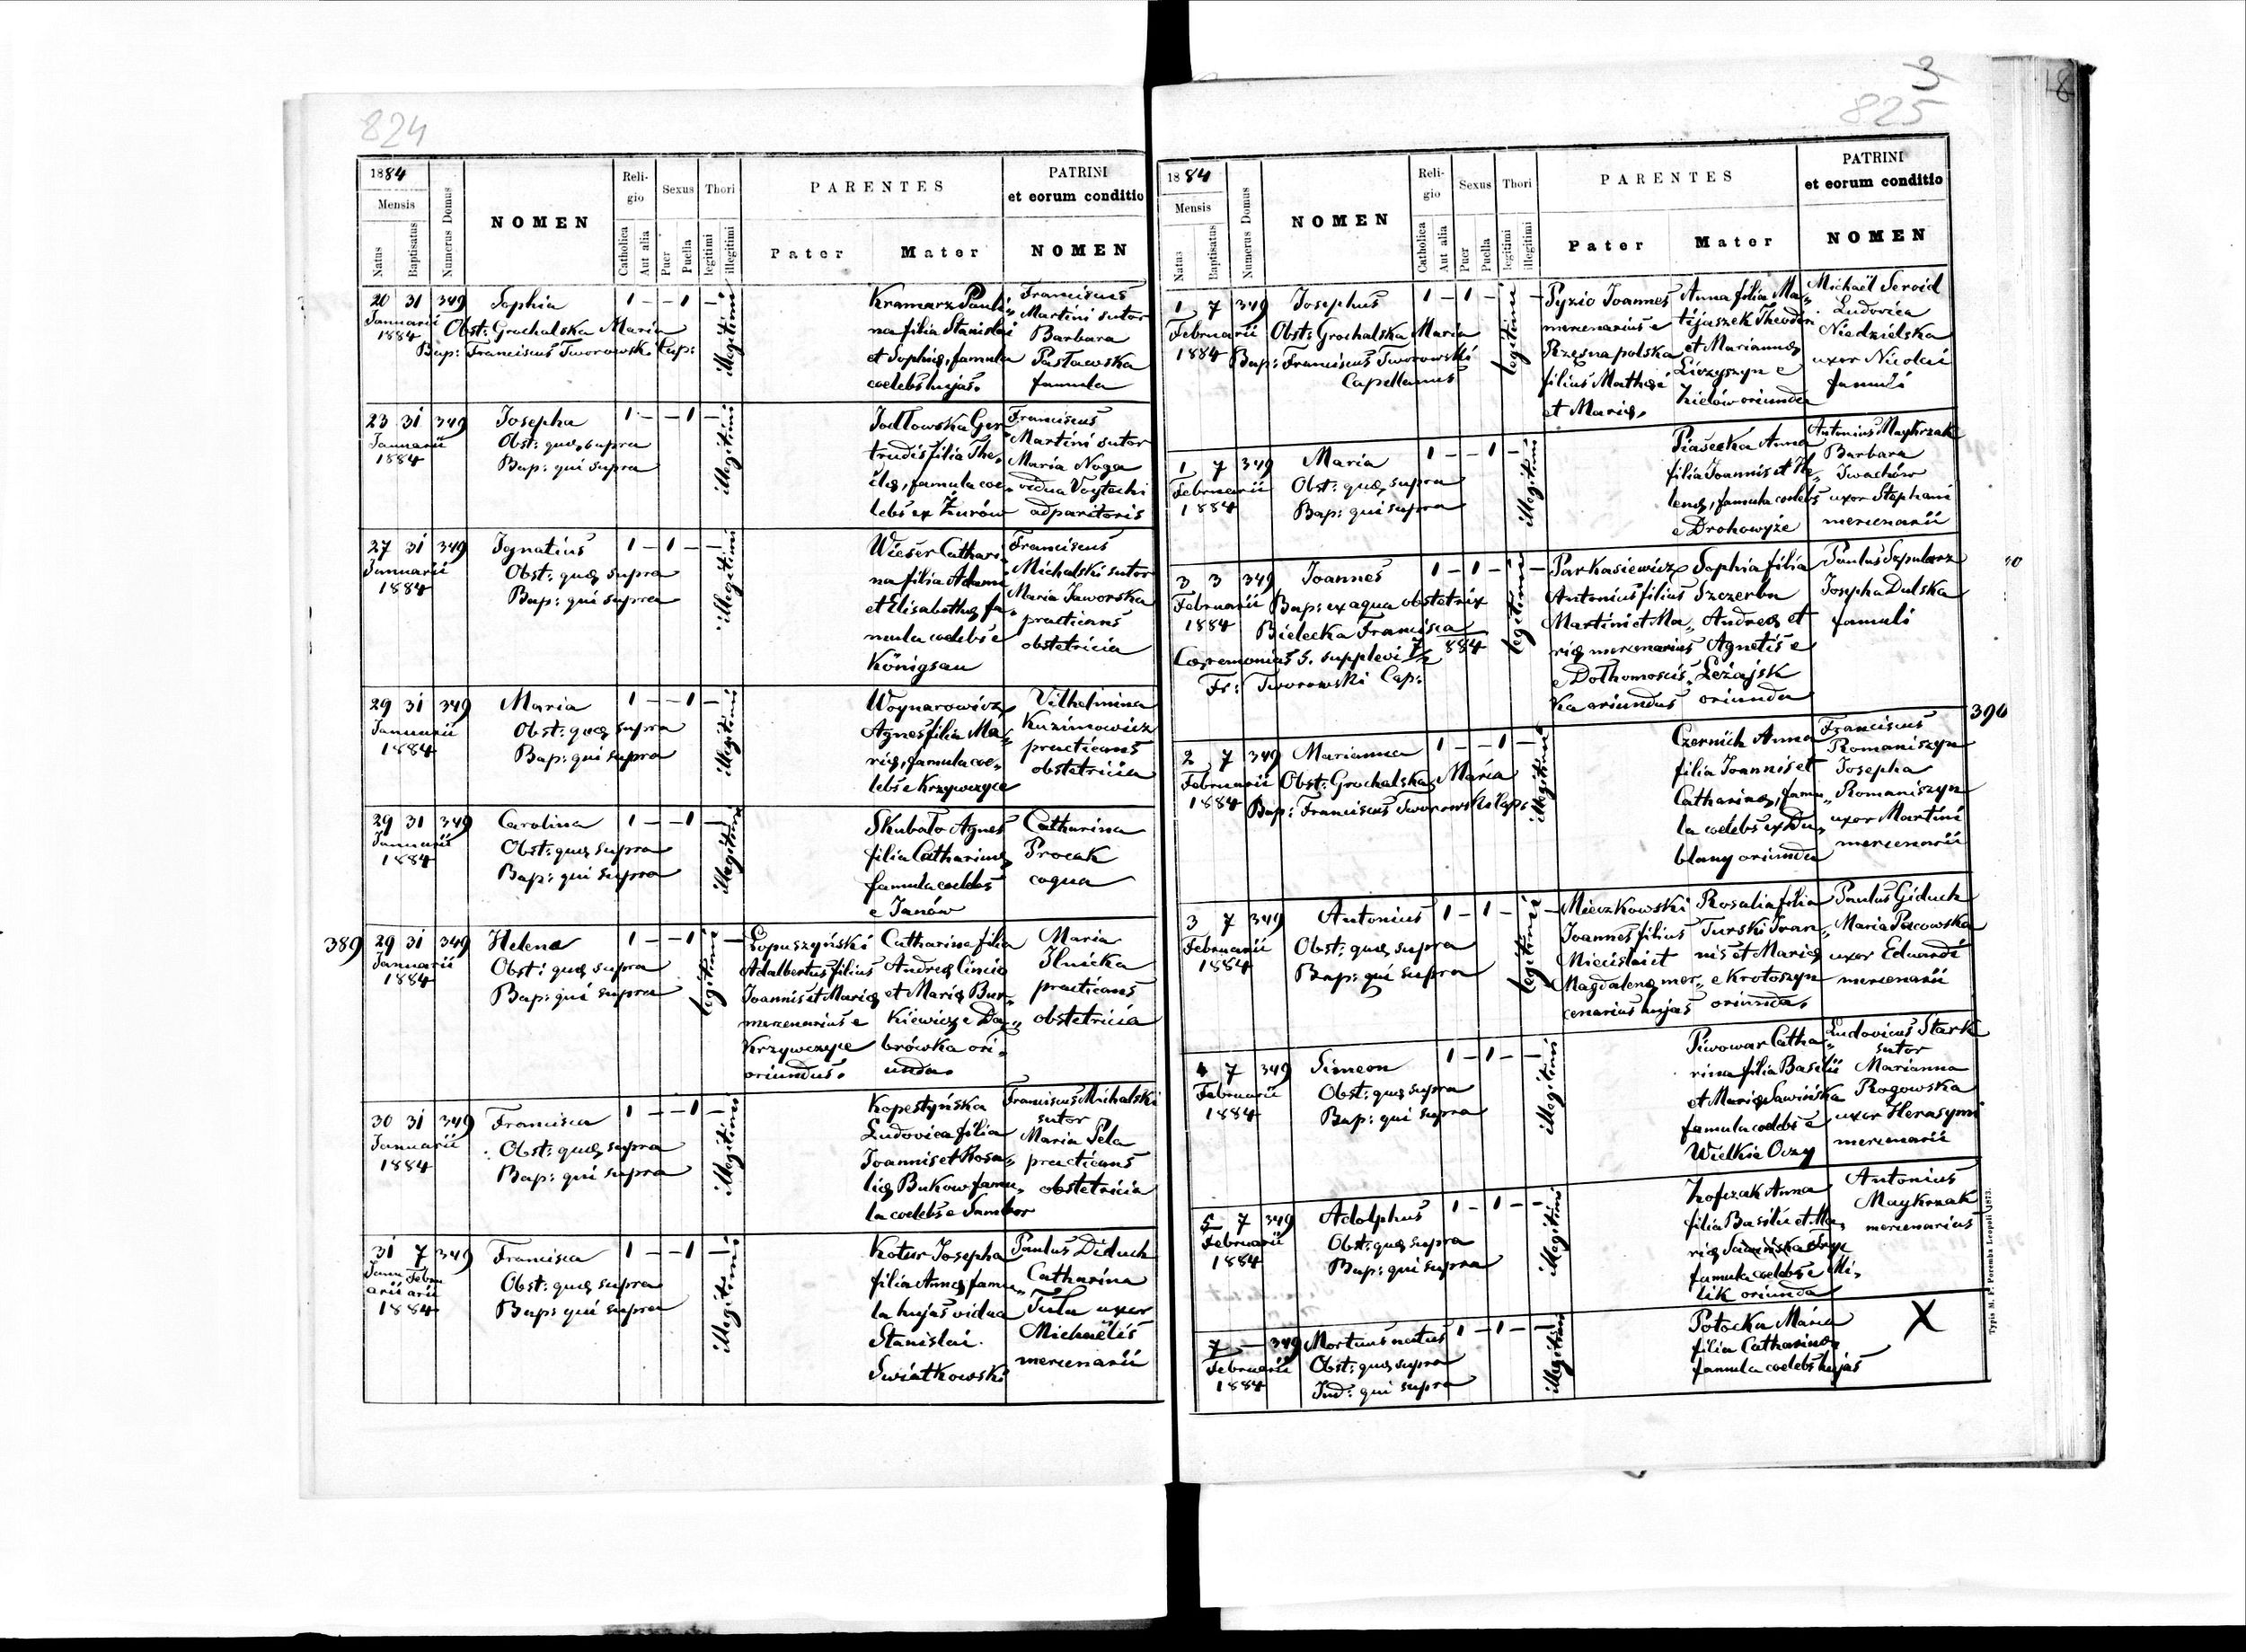 824
1884
Mensis
Natus
Baptisatus
Numerus Domus
NOMEN
Reli-
gio
Catholica
Aut alia
Sexus
Puer
Puella
Thori
legitimi
illegitimi
PARENTES
Pater
Mater
PATRINI
et eorum conditio
NOMEN
20 31 349 Sophia 1 – – 1 –
Januarii
1884
Obst: Grochalska Maria
Bap: Franciscus Tworowski Cap:
illegitimi
Kramarz Pauli„
na filia Stanislai
et Sophię, famula
coelebs hujas.
Franciscus
Martini sutor
Barbara
Pasławska
famula
23 31 349 Josepha 1 – – 1 –
Januarii
1884
Obst: quę supra
Bap: qui supra
illegitimi
Jodłowska Ger
trudis filia The„
clę, famula coe„
lebs ex Żurów
Franciscus
Martini sutor
Maria Noga
vidua Voytechi
adparitoris
27 31 349 Ignatius 1 – 1 – –
Januarii
1884
Obst: quę supra
Bap: qui supra
illegitimi
Wieser Cathari„
na filia Adami
et Elisabethę fa„
mula coelebs e
Königsau
Franciscus
Michalski sutor
Maria Jaworska
practicans
obstetricia
29 31 349 Maria 1 – – 1 –
Januarii
1884
Obst: quę supra
Bap: qui supra
illegitimi
Woynarowicz
Agnes filia Ma„
rię, famula coe„
lebs e Krzywczyce
Vilhelmina
Kuzimowicz
practicans
obstetricia
29 31 349 Carolina 1 – – 1 –
Januarii
1884
Obst: quę supra
Bap: qui supra
illegitimi
Skubało Agnes
filia Catharinę
famula coelebs
e Janów
Catharina
Procak
coqua
389 29 31 349 Helena 1 – – 1 –
Januarii
1884
Obst: quę supra
Bap: qui supra
legitimi
Łopuszyński
Adalbertus filius
Joannis et Marię
mercenarius e
Krzywczyce
oriundus.
Catharina filia
Andreę Cincio
et Marię Bur„
kiewicz e Dą„
brówka ori„
unda.
Maria
Ilnicka
practicans
obstetricia
30 31 349 Francisca 1 – – 1 –
Januarii
1884
Obst: quę supra
Bap: qui supra
illegitimi
Kopestyńska
Ludovica filia
Joannis et Rosa„
lię Bukow famu„
la coelebs e Sambor
Franciscus Michalski
sutor
Maria Pela
practicans
obstetricia
31 7 349 Francisca 1 – – 1 –
Janu Febru
arii arii
1884
Obst: quę supra
Bap: qui supra
illegitimi
Kotur Josepha
filia Annę famu„
la hujas vidua
Stanislai
Swiątkowski
Paulus Diduch
Catharina
Tula uxor
Michaëlis
mercenarii
3
825
18
1884
Mensis
Natus
Baptisatus
Numerus Domus
NOMEN
Reli-
gio
Catholica
Aut alia
Sexus
Puer
Puella
Thori
legitimi
illegitimi
PARENTES
Pater
Mater
PATRINI
et eorum conditio
NOMEN
1 7 349 Josephus 1 – 1 – –
Februarii
1884
Obst: Grochalska Maria
Bap: Franciscus Tworowski
Capellanus
legitimi
Pyzio Joannes
mercenarius e
Rzęsna polska
filius Mathęi
et Marię.
Anna filia Ma„
tijaszek Theodori
et Mariannę
Liczyszyn e
oriunda
Michaël Seroid
Ludovica
Niedzielska
uxor Nicolai
famuli
1 7 349 Maria 1 – – 1 –
Februarii
1884
Obst: quę supra
Bap: qui supra
illegitimi
Piasecka Anna
filia Joannis et He„
lenę, famula coelebs
e Drohowyże
Antonius Maykrzak
Barbara
Iwachów
uxor Stephani
mercenarii
3 3 349 Joannes 1 – 1 – –
Februarii
1884
Bap: ex aqua obstetrix
Bielecka Francisca
Cęremonias s. supplevi 7/2 884
Fr: Tworowski Cap:
legitimi
Parkasiewicz
Antonius filius
Martini et Ma„
rię mercenarius
e Dołhomościs„
ka oriundus
Sophia filia
Szczerba
Andreę et
Agnetis e
Leżajsk
oriunda
Paulus Szpularz
Josepha Dulska
famuli
390
2 7 349 Marianna 1 – – 1 –
Februarii
1884
Obst: Grochalska Maria
Bap: Franciscus Tworowski Cap:
illegitimi
Czernich Anna
filia Joannis et
Catharinę, famu„
la coelebs ex Du„
blany oriunda
Franciscus
Romaniszyn
Josepha
Romaniszyn
uxor Martini
mercenarii
3 7 349 Antonius 1 – 1 – –
Februarii
1884
Obst: quę supra
Bap: qui supra
legitimi
Mieczkowski
Joannes filius
Miecislai et
Magdalenę mer„
cenarius hujas
Rosalia filia
Turski Joan„
nis et Marię
e Krotoszyn
oriunda.
Paulus Giduch
Maria Pacowska
uxor Eduardi
mercenarii
4 7 349 Simeon 1 – 1 – –
Februarii
1884
Obst: quę supra
Bap: qui supra
illegitimi
Piwowar Catha„
rina filia Basilii
et Marię Sawińska
famula coelebs e
Wielkie Oczy
Ludovicus Stark
sutor
Marianna
Rogowska
uxor Herasymi
mercenarii
5 7 349 Adolphus 1 – 1 – –
Februarii
1884
Obst: quę supra
Bap: qui supra
illegitimi
Anna
filia Basilii et Ma„
rię
famula coelebs e Mi„
lik oriunda
Antonius
Maykrzak
mercenarius
7 – 349 Mortuus natus 1 – 1 – –
Februarii
1884
Obst: quę supra
Ind: qui supra
illegitimi
Potocka Maria
filia Catharinę
famula coelebs hujas
X
Typis M. F. Poremba Leopoli 1873.